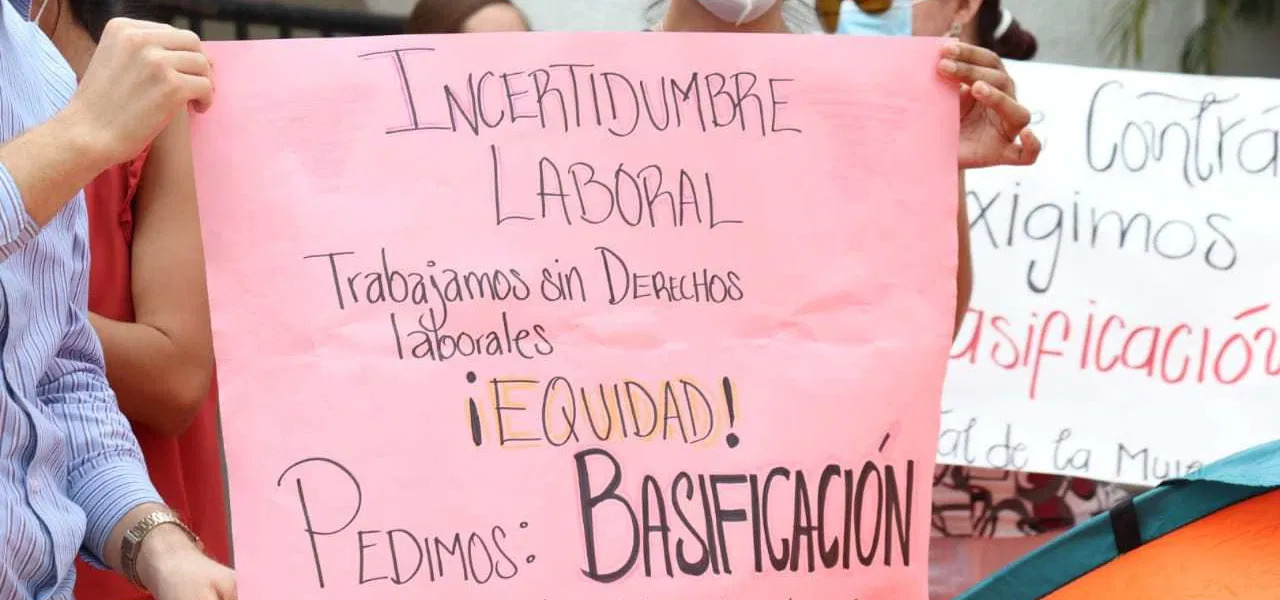 INCERTIDUMBRE
LABORAL
Trabajamos sin DERECHOS
laborales
¡EQUIDAD!
PEDIMOS: BASIFICACIÓN
Contrá
xigimos
asificación
al de la Muje